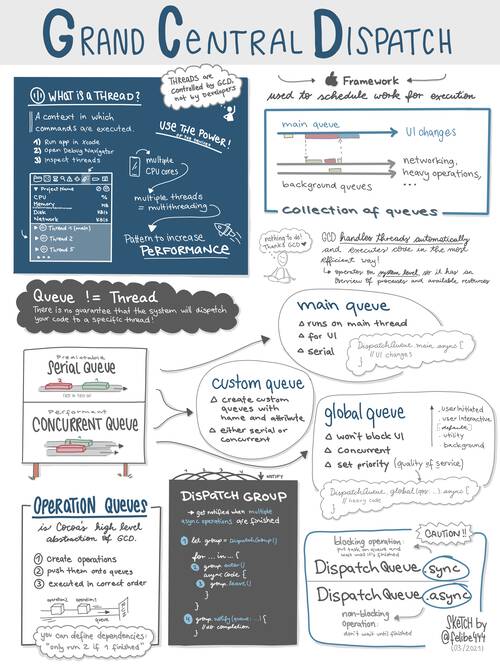 GRAND CENTRAL DISPATCH
THREADS are
controlled by GCD,
not by Developers
WHAT IS A THREAD?
A context in which
commands are executed.
1) Run app in Xcode
2) Open Debug Navigator
3) Inspect threads
Project Name
CPU %
Memory MB
Disk KB/s
Network KB/s
Thread 1 (main)
Thread 2
Thread 5
...
USE THE POWER!
OF THE DEVICES
multiple
CPU cores
multiple threads
= multithreading
Pattern to increase
PERFORMANCE
Framework
used to schedule work for execution
main queue
UI changes
networking,
heavy operations,
...
background queues
Collection of queues
nothing to do!
Thanks GCD ♥
GCD handles threads automatically
and executes code in the most
efficient way!
operates on system level so it has an
overview of processes and available resources
Queue != Thread
There is no guarantee that the system will dispatch
your code to a specific thread!
main queue
runs on main thread
for UI
serial
DispatchQueue.main.async {
// UI changes
}
Predictable
SERIAL QUEUE
Performant
CONCURRENT QUEUE
custom queue
create custom
queues with
name and attribute
either serial or
concurrent
global queue
won't block UI
concurrent
set priority (quality of service)
. userInitiated
. userInteractive
[default]
. utility
. background
DispatchQueue.global(qos: ...).async {
// heavy code
}
OPERATION QUEUES
is Cocoa's high level
abstraction of GCD.
1 create operations
2 push them onto queues
3 executed in correct order
operation2
operation1
queue
you can define dependencies:
"only run 2 if 1 finished"
NOTIFY
DISPATCH GROUP
get notified when multiple
async operations are finished
1 let group = DispatchGroup()
for ... in ... {
2 group.enter()
async code {
3 group.leave()
}
}
4 group.notify(queue: ...) {
// on completion
}
CAUTION!!
blocking operation:
put task on queue and
wait until it's finished
DispatchQueue.sync
DispatchQueue.async
non-blocking
operation:
don't wait until finished
SKETCH by
@felibe444
(03/2021)